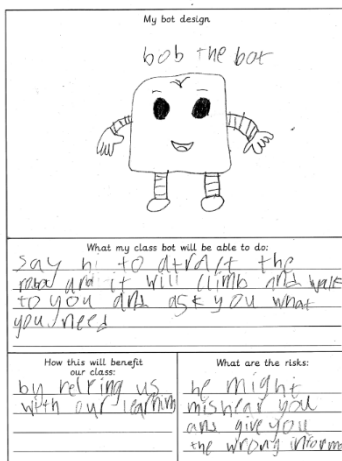 My bot design
bob the bot
What my class bot will be able to do:
say hi to atract the
and it will climb and walk
to you and ask you what
you need
How this will benefit
our class:
by relping us
with our learning
What are the risks:
he might
mishear you
and give you
the wrong inform